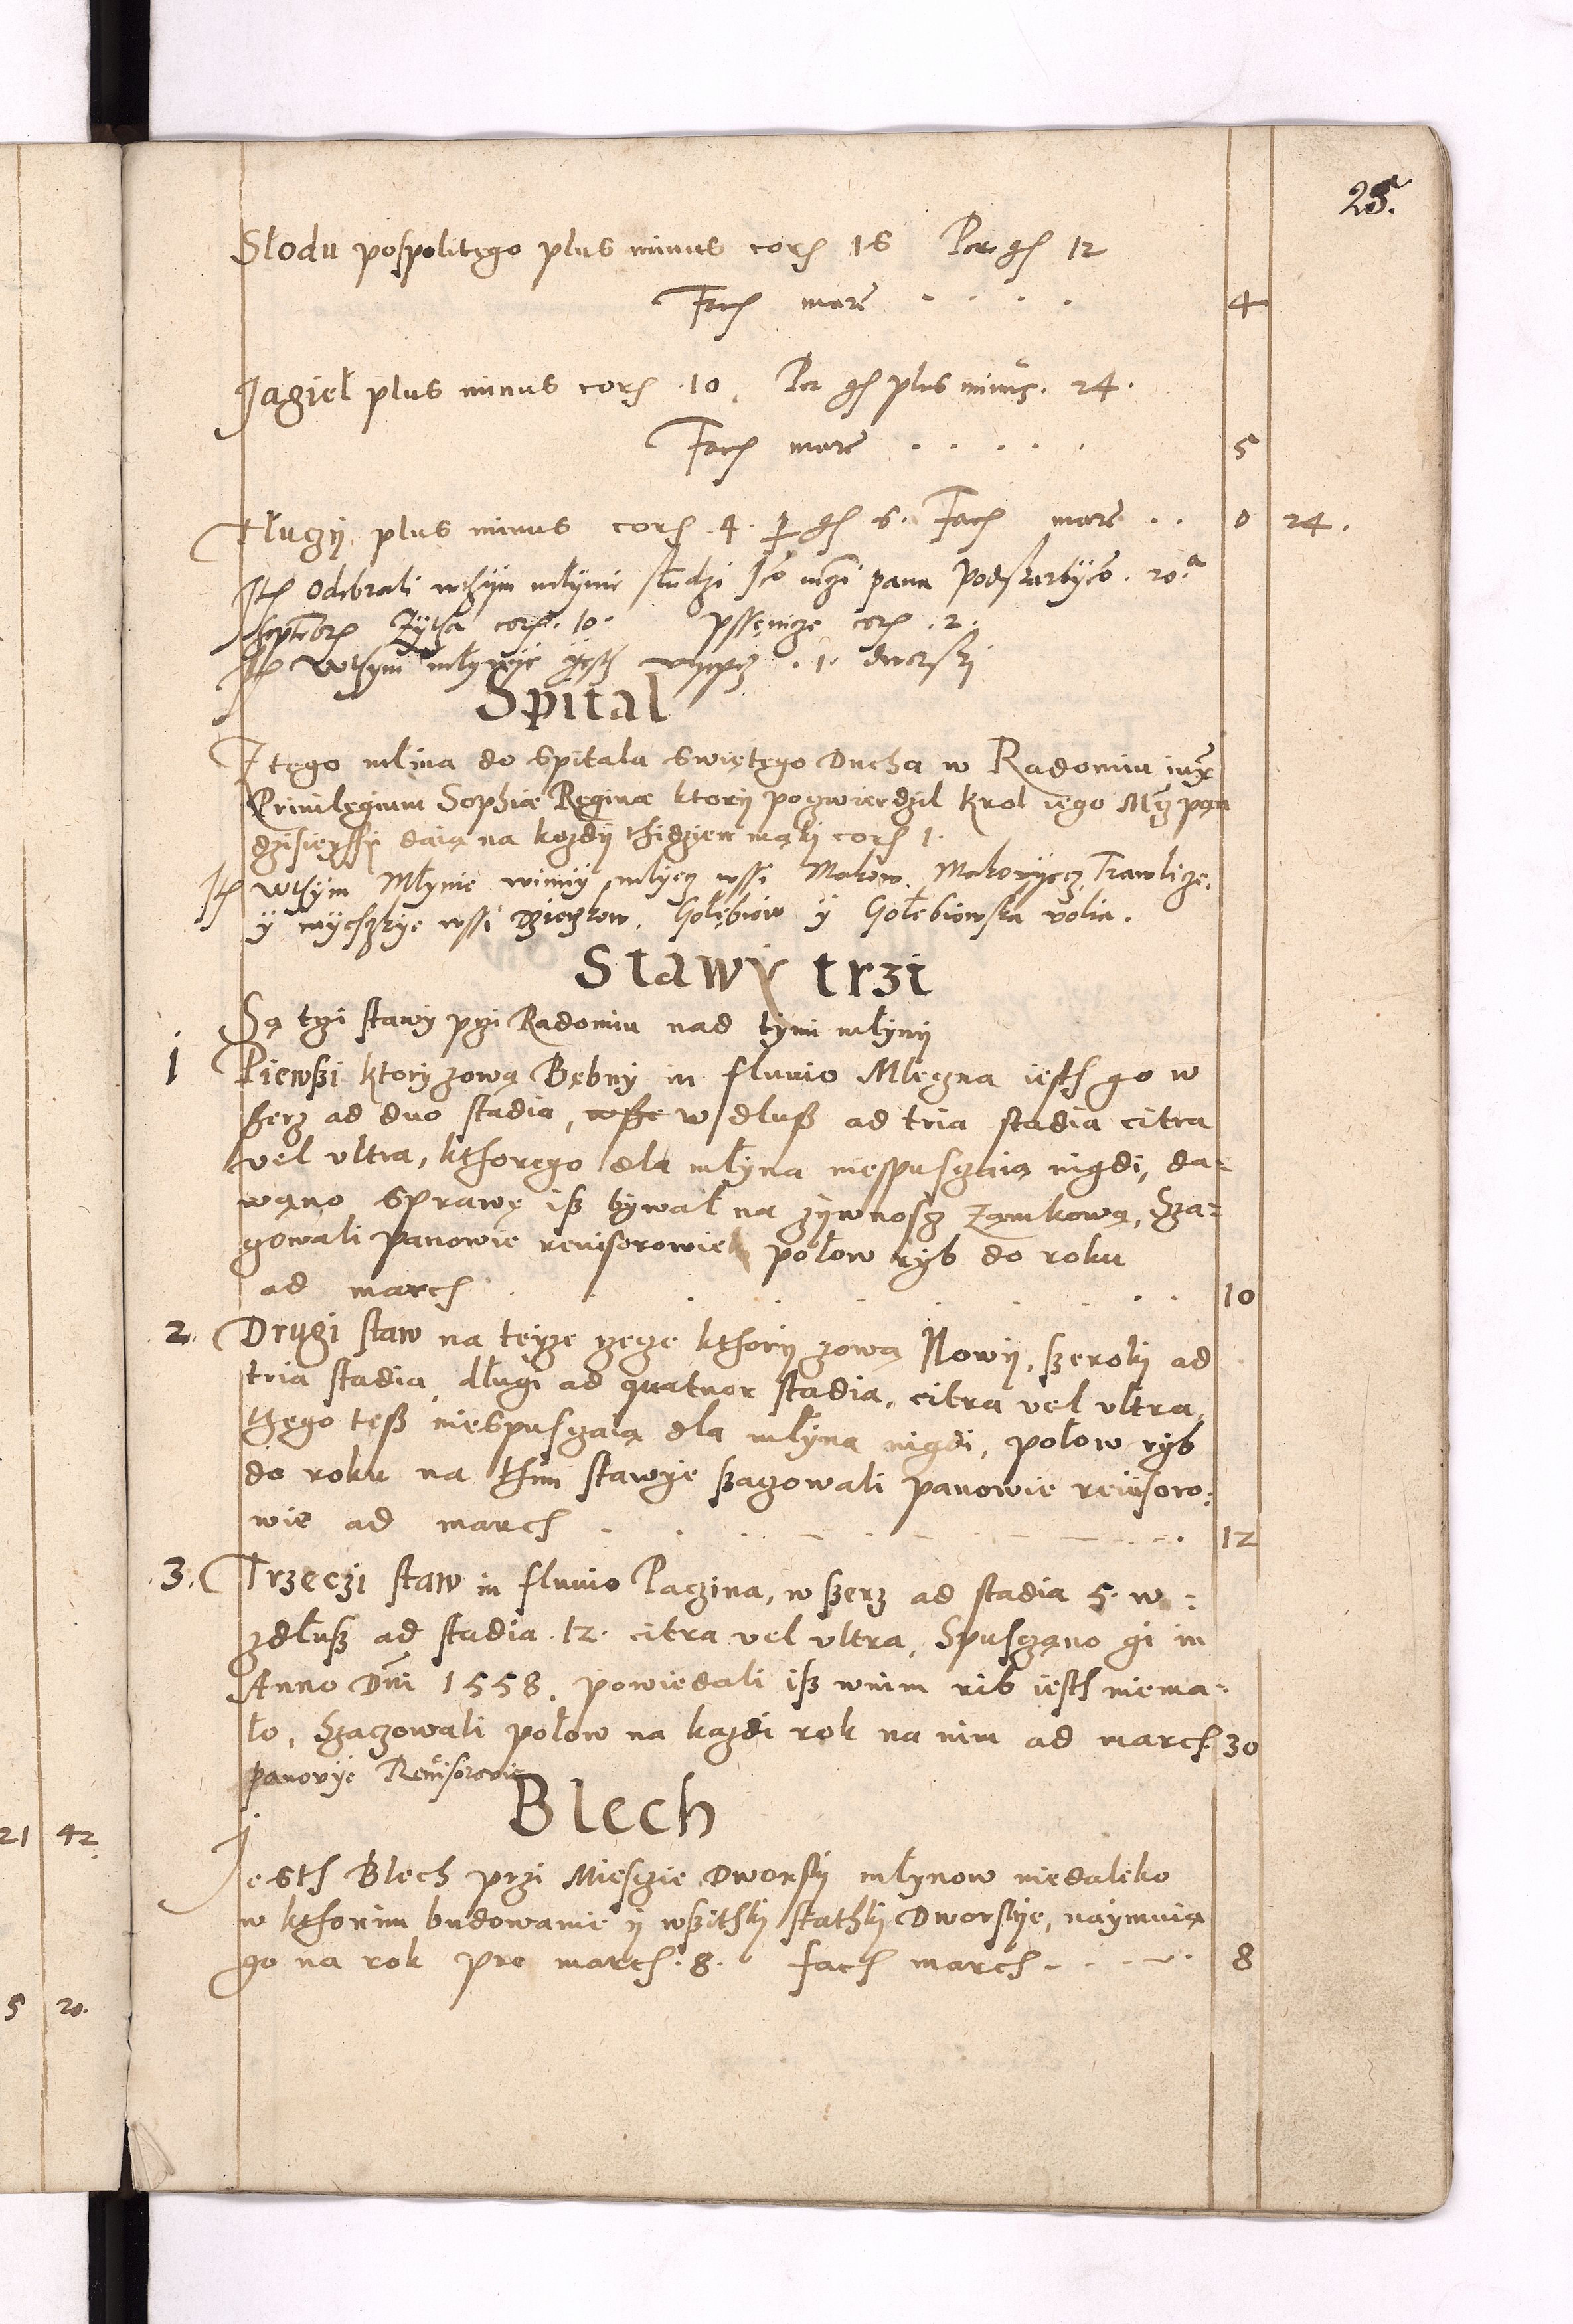 25.
Slodu pospolitego plus minus corę 16 Per gł 12
Facę marc . . . . 4
Jagieł plus minus corę .10. Per gł plus minus. 24.
Facę marc . . . . . 5
Tłuczy plus minus corę .4. per gł 6. Facę marc . . 0 24.
Itę Odebrali wthym młynie słudzi Jeo mczi pana Podskarbyeo. 20.a
Septebrę Zytha corę. 10. pssenicze corę .2.
Itę Wthym młynye .1. dworski
Spital
Z tego mlina do Spitala Swiętego Ducha w Radomiu iuxta
Priuilegium Sophiæ Reginæ ktory poczwierdzil Krol iego Mcz pan
dzisieyssy daią na kozdy thidzien mąki corę 1.
Itę Wthym Mlynie winny mlyecz wssi Makow. Makowyecz, Trawlicze,
y wssi Dzierzkow. Gołębiow y Gołebiowska volia.
Stawy trzi
Są trzi stawy przi Radomiu nad tymi młyny
1 Pierwszi ktory zową Bębny in fluuio Mleczna iesth go w
szerz ad duo stadia, w dlusz ad tria stadia citra
vel vltra, kthorego dla młyna niespusczaią nigdi, da-
wąno sprawę isz bywał na zywnoscz Zamkową, Sza-
gowali Panowie reuisorowie połow ryb do roku
ad marcę . . . . . . . . . 10
2. Drugi staw na teyze rzecze kthory zową Nowy, szeroki ad
tria stadia, długi ad quatuor stadia, citra vel vltra,
thego tesz niespusczaią dla młyna nigdi, połow ryb
do roku na thim stawye szagowali panowie reuisoro-
wie ad marcę . . . . . . 12
3. Trzeczi staw in fluuio Paczina, w szerz ad stadia 5. w-
zdłusz ad stadia .12. citra vel vltra, Spuscząno gi in
Anno Dni 1558. powiedali isz wnim rib iesth niema-
ło, Szaczowali połow na kazdi rok na nim ad marcę. 30
panovye Reuisorovie
Blech
Jesth Blech przi Miesczie Dworsky młynow niedaleko
w kthorim budowanie y wszithky stathky Dworskye, naymuią
go na rok pro marcę. 8. facę marcę . . . . 8
21 42
5 20.